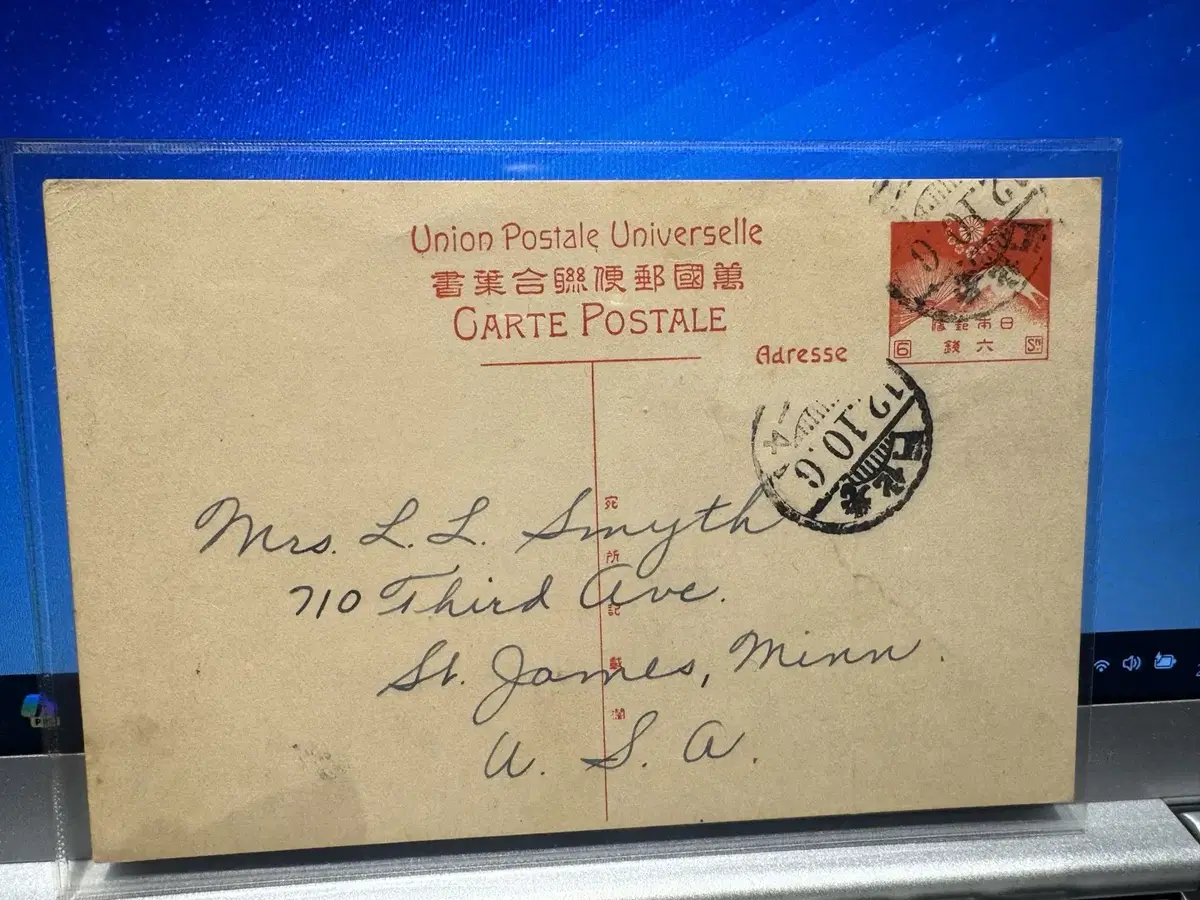 Union Postale Universelle
萬國郵便聯合葉書
CARTE POSTALE
Adresse
日本郵便
6 六錢 Sn
12.10.6
宛所記載欄
Mrs. L. L. Smyth
710 Third Ave.
St. James, Minn.
U. S. A.